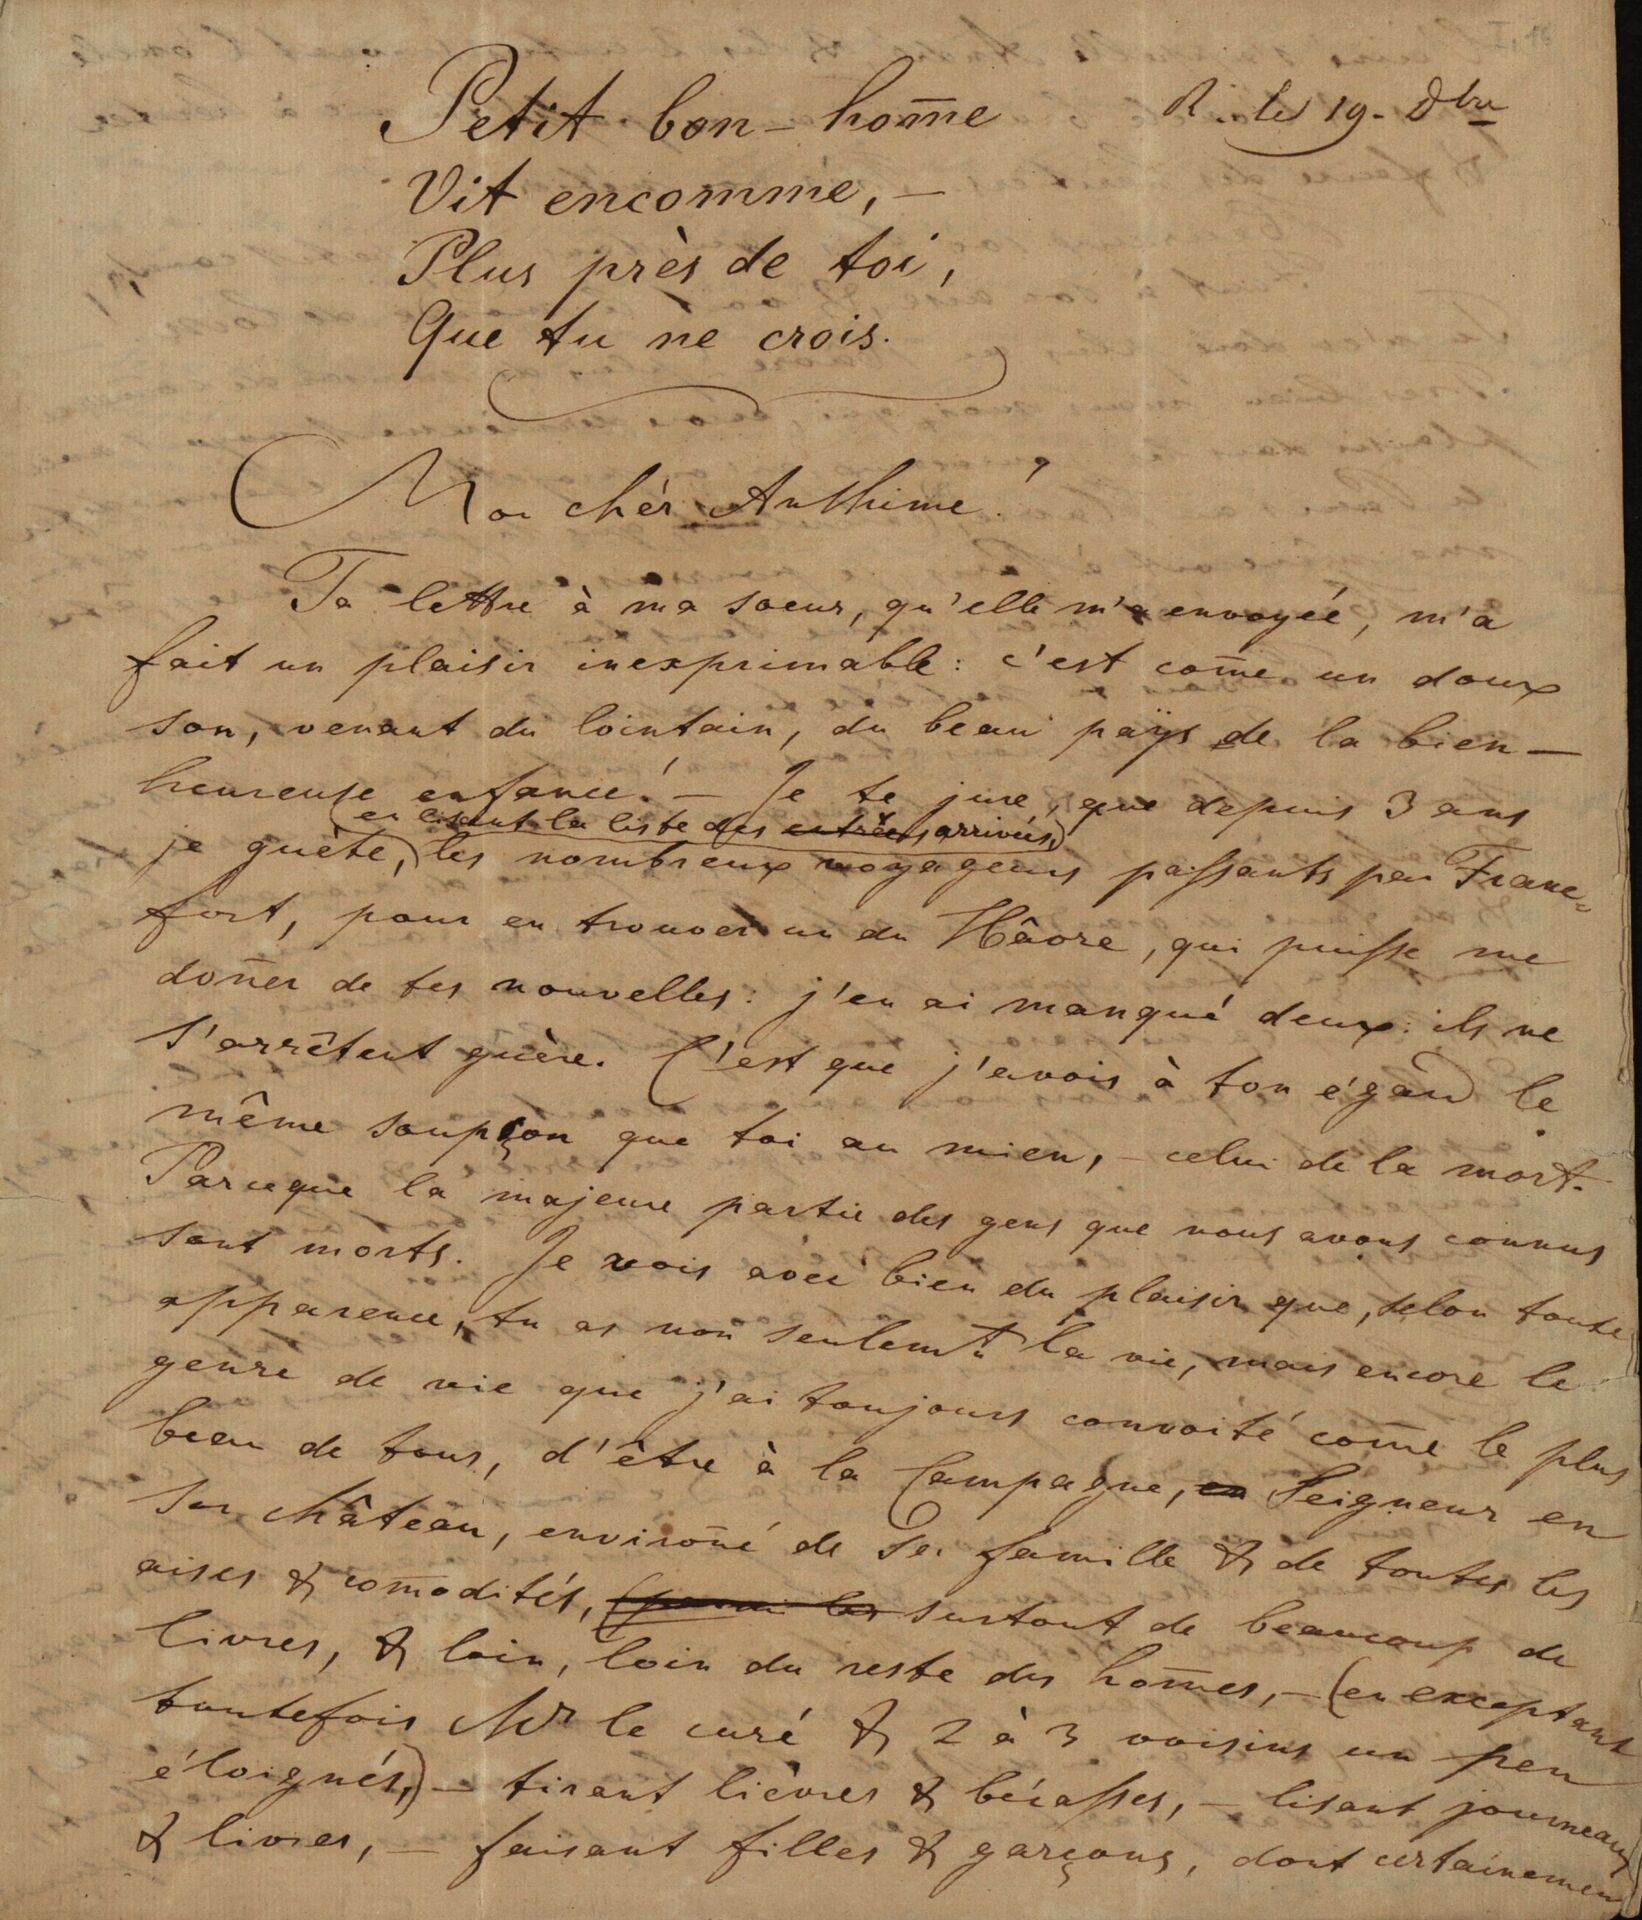 R. le 19. Xbre
Petit bon-hom̄e
Vit encomme, –
Plus près de toi,
Que tu ne crois.
Mon chér Anthime!
Ta lettre à ma soeur, qu'elle m'a envoyéé, m'a
fait un plaisir inexprimable: c'est com̄e un doux
son, venant du lointain, du beau paÿs de la bien-
heureuse enfance! – Je te jure, que depuis 3 ans
(en lisant la liste des entrées arrivées,)
je guète, les nombreux voyageurs passants par Franc=
fort, pour en trouver un du Hâvre, qui puisse me
don̄er de tes nouvelles: j'en ai manqué deux: ils ne
s'arrêtent guère. C'est que j'avois à ton égard le
même soupçon que toi au mien, – celui de la mort.
Parceque la majeure partie des gens que nous avons connus
sont morts. Je vois avec bien du plaisir que, selon toute
apparence, tu as non seulemt. la vie, mais encore le
genre de vie que j'ai toujours convoité com̄e le plus
beau de tous, d'être à la Campagne, en Seigneur en
son château, environ̄é de sa famille & de toutes les
aises & com̄odités, (parmi les surtout de beaucoup de
livres, & loin, loin du reste des hom̄es, – (en exceptant
toutefois Mr le curé & 2 à 3 voisins un peu
éloignés,) – tirant lièvres & bécasses, – lisant journeaux
& livres, – faisant filles & garçons, dont certainement